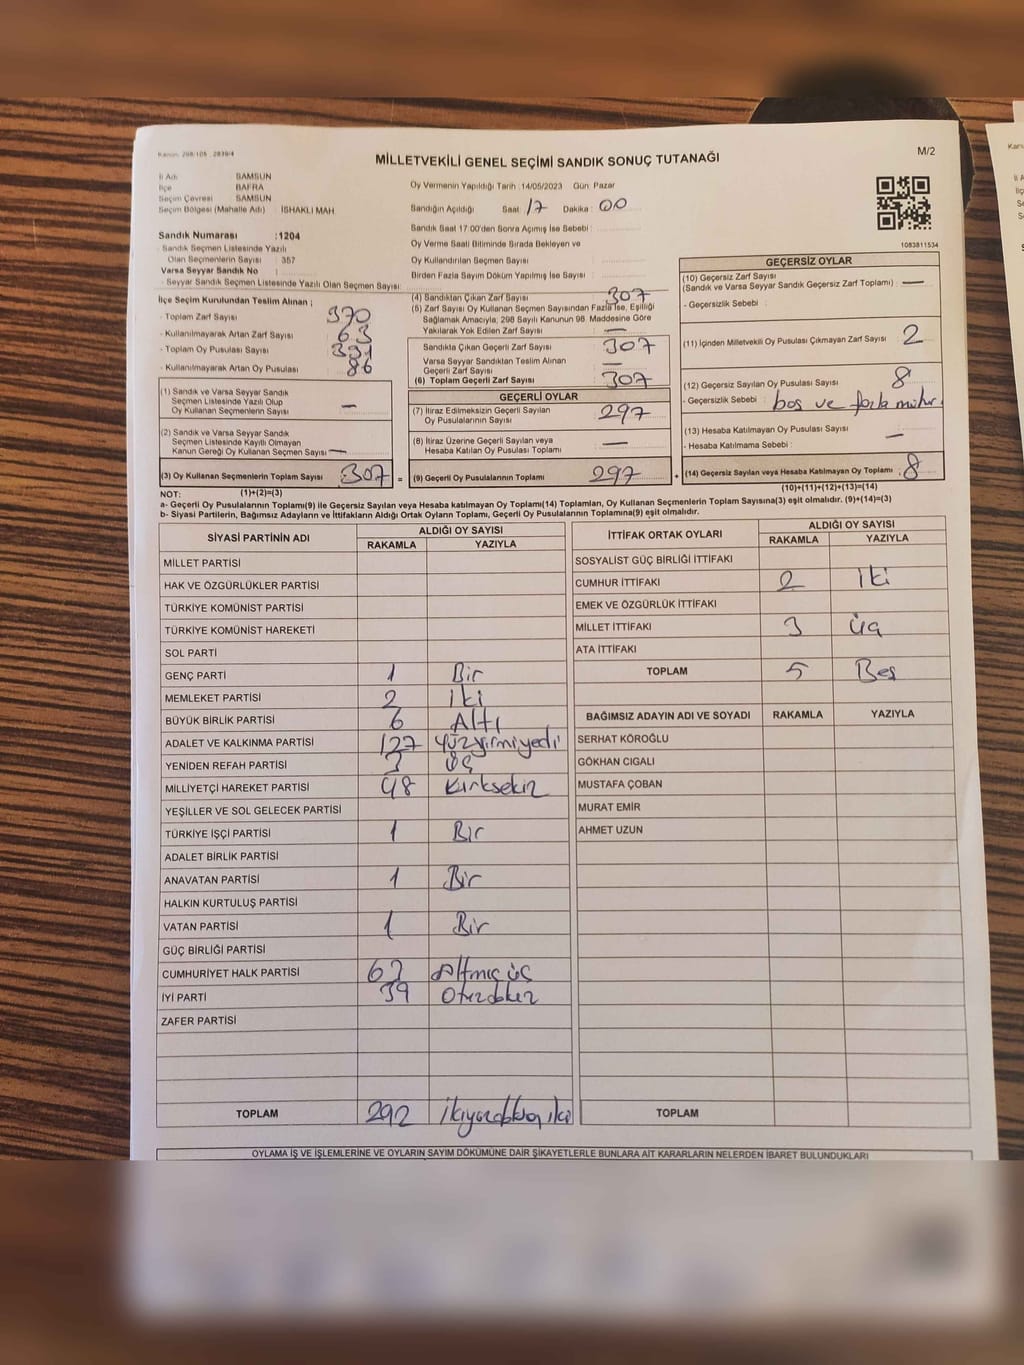 Kanun: 298/105 , 2839/4
MİLLETVEKİLİ GENEL SEÇİMİ SANDIK SONUÇ TUTANAĞI
M/2
İl Adı SAMSUN
İlçe BAFRA
Seçim Çevresi SAMSUN
Seçim Bölgesi (Mahalle Adı) : İSHAKLI MAH
Sandık Numarası :1204
- Sandık Seçmen Listesinde Yazılı
Olan Seçmenlerin Sayısı : 357
Varsa Seyyar Sandık No :
- Seyyar Sandık Seçmen Listesinde Yazılı Olan Seçmen Sayısı:
Oy Vermenin Yapıldığı Tarih :14/05/2023 Gün: Pazar
Sandığın Açıldığı Saat 17 Dakika : 00
Sandık Saat 17:00'den Sonra Açımış İse Sebebi :
Oy Verme Saati Bitiminde Sırada Bekleyen ve
Oy Kullandırılan Seçmen Sayısı :
Birden Fazla Sayım Döküm Yapılmış İse Sayısı :
1083811534
İlçe Seçim Kurulundan Teslim Alınan ;
- Toplam Zarf Sayısı 370
- Kullanılmayarak Artan Zarf Sayısı 63
- Toplam Oy Pusulası Sayısı
- Kullanılmayarak Artan Oy Pusulası 86
(1) Sandık ve Varsa Seyyar Sandık
Seçmen Listesinde Yazılı Olup
Oy Kullanan Seçmenlerin Sayısı —
(2) Sandık ve Varsa Seyyar Sandık
Seçmen Listesinde Kayıtlı Olmayan
Kanun Gereği Oy Kullanan Seçmen Sayısı —
(3) Oy Kullanan Seçmenlerin Toplam Sayısı 307 =
(1)+(2)=(3)
(4) Sandıktan Çıkan Zarf Sayısı 307
(5) Zarf Sayısı Oy Kullanan Seçmen Sayısından Fazla İse, Eşitliği
Sağlamak Amacıyla, 298 Sayılı Kanunun 98. Maddesine Göre
Yakılarak Yok Edilen Zarf Sayısı : —
Sandıkta Çıkan Geçerli Zarf Sayısı 307
Varsa Seyyar Sandıktan Teslim Alınan
Geçerli Zarf Sayısı —
(6) Toplam Geçerli Zarf Sayısı 307
GEÇERLİ OYLAR
(7) İtiraz Edilmeksizin Geçerli Sayılan
Oy Pusulalarının Sayısı 297
(8) İtiraz Üzerine Geçerli Sayılan veya
Hesaba Katılan Oy Pusulası Toplamı —
(9) Geçerli Oy Pusulalarının Toplamı 297 +
GEÇERSİZ OYLAR
(10) Geçersiz Zarf Sayısı
(Sandık ve Varsa Seyyar Sandık Geçersiz Zarf Toplamı) : —
- Geçersizlik Sebebi :
(11) İçinden Milletvekili Oy Pusulası Çıkmayan Zarf Sayısı 2
(12) Geçersiz Sayılan Oy Pusulası Sayısı 8
- Geçersizlik Sebebi : boş ve fazla mühür.
(13) Hesaba Katılmayan Oy Pusulası Sayısı —
- Hesaba Katılmama Sebebi :
(14) Geçersiz Sayılan veya Hesaba Katılmayan Oy Toplamı 8
(10)+(11)+(12)+(13)=(14)
NOT:
a- Geçerli Oy Pusulalarının Toplamı(9) ile Geçersiz Sayılan veya Hesaba katılmayan Oy Toplamı(14) Toplamları, Oy Kullanan Seçmenlerin Toplam Sayısına(3) eşit olmalıdır. (9)+(14)=(3)
b- Siyasi Partilerin, Bağımsız Adayların ve İttifakların Aldığı Ortak Oyların Toplamı, Geçerli Oy Pusulalarının Toplamına(9) eşit olmalıdır.
SİYASİ PARTİNİN ADI ALDIĞI OY SAYISI
RAKAMLA YAZIYLA
MİLLET PARTİSİ
HAK VE ÖZGÜRLÜKLER PARTİSİ
TÜRKİYE KOMÜNİST PARTİSİ
TÜRKİYE KOMÜNİST HAREKETİ
SOL PARTİ
GENÇ PARTİ 1 Bir
MEMLEKET PARTİSİ 2 iki
BÜYÜK BİRLİK PARTİSİ 6 Altı
ADALET VE KALKINMA PARTİSİ 127 Yüzyirmiyedi
YENİDEN REFAH PARTİSİ 3 Üç
MİLLİYETÇİ HAREKET PARTİSİ 48 Kırksekiz
YEŞİLLER VE SOL GELECEK PARTİSİ
TÜRKİYE İŞÇİ PARTİSİ 1 Bir
ADALET BİRLİK PARTİSİ
ANAVATAN PARTİSİ 1 Bir
HALKIN KURTULUŞ PARTİSİ
VATAN PARTİSİ 1 Bir
GÜÇ BİRLİĞİ PARTİSİ
CUMHURİYET HALK PARTİSİ 63 Altmış üç
İYİ PARTİ 39 Otuzdokuz
ZAFER PARTİSİ
TOPLAM 292 ikiyüzdoksan iki
İTTİFAK ORTAK OYLARI ALDIĞI OY SAYISI
RAKAMLA YAZIYLA
SOSYALİST GÜÇ BİRLİĞİ İTTİFAKI
CUMHUR İTTİFAKI 2 iki
EMEK VE ÖZGÜRLÜK İTTİFAKI
MİLLET İTTİFAKI 3 üç
ATA İTTİFAKI
TOPLAM 5 Beş
BAĞIMSIZ ADAYIN ADI VE SOYADI RAKAMLA YAZIYLA
SERHAT KÖROĞLU
GÖKHAN CIGALI
MUSTAFA ÇOBAN
MURAT EMİR
AHMET UZUN
TOPLAM
OYLAMA İŞ VE İŞLEMLERİNE VE OYLARIN SAYIM DÖKÜMÜNE DAİR ŞİKAYETLERLE BUNLARA AİT KARARLARIN NELERDEN İBARET BULUNDUKLARI